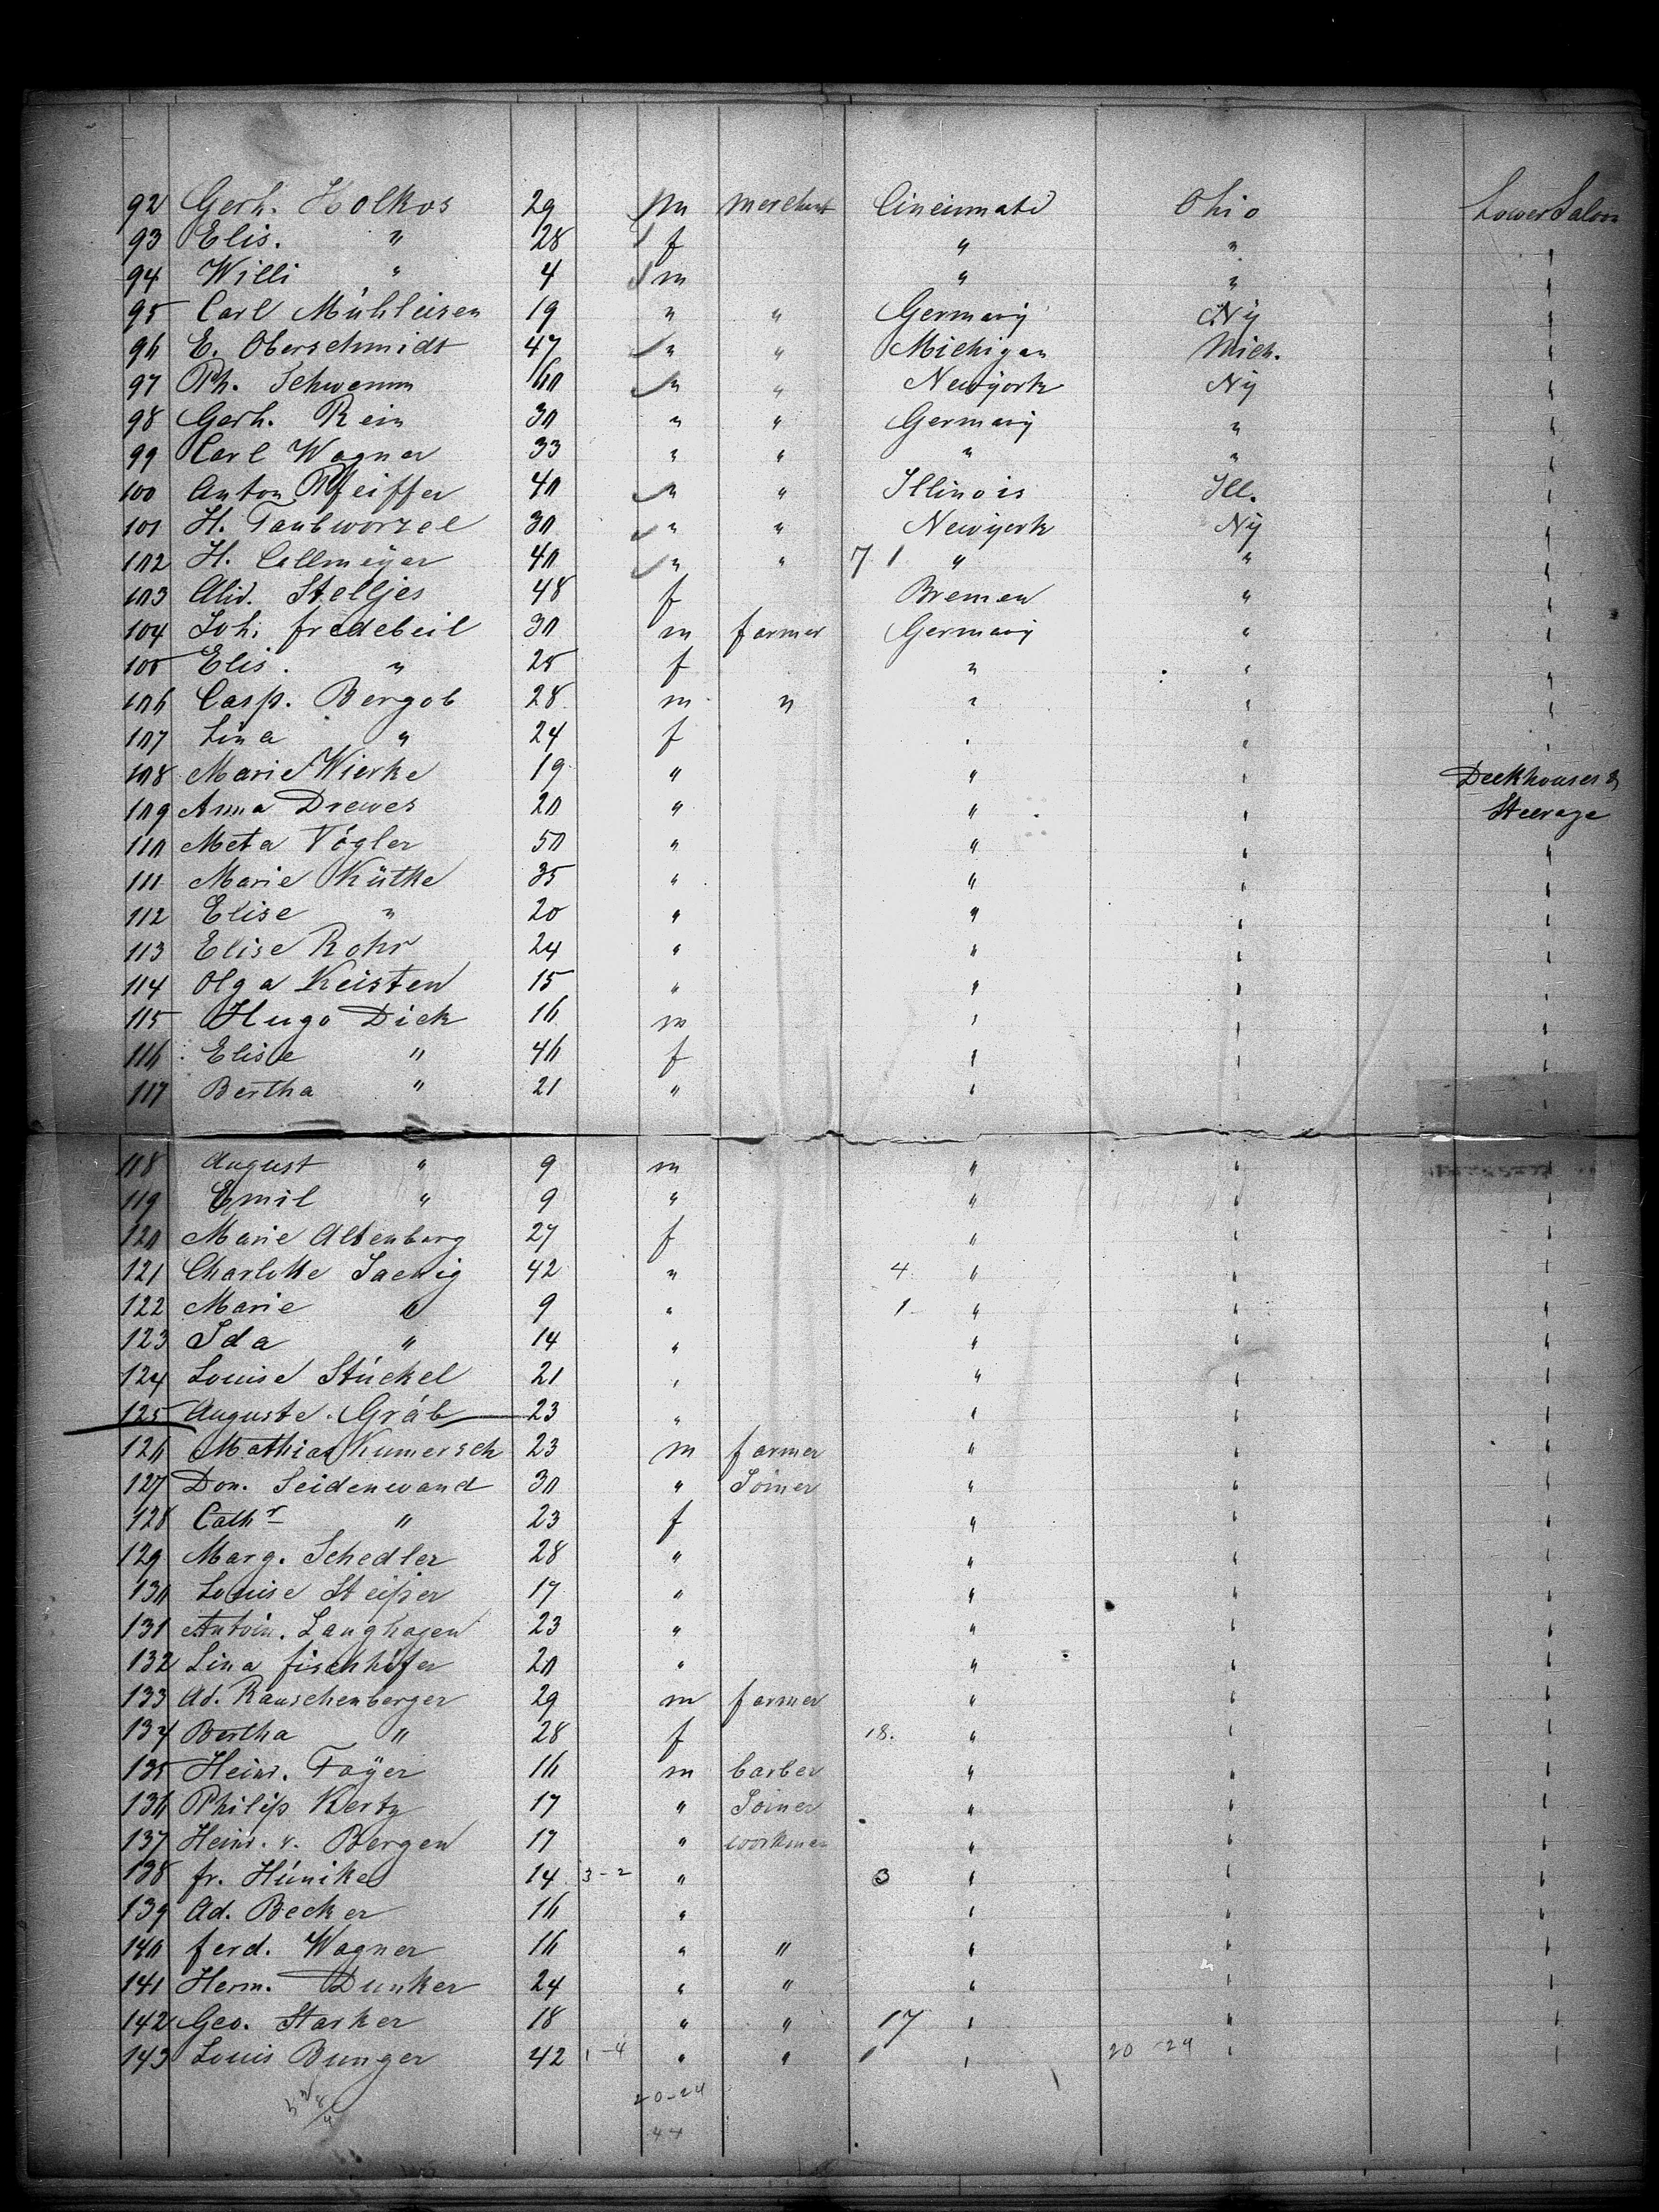 92 Gerh. Holkos 29 m merchant Cincinnati Ohio Lower Saloon
93 Elis. " 28 f " " "
94 Willi " 4 m " " "
95 Carl Mühleisen 19 " " Germany Ny "
96 E. Oberschmidt 47 " " Michigan Mich. "
97 Ph. Schwemm 60 " " Newyork Ny "
98 Gerh. Rein 30 " " Germany " "
99 Carl Wagner 33 " " " " "
100 Anton Pfeiffer 40 " " Illinois Ill. "
101 H. Taubworzel 30 " " Newyork Ny "
102 H. Callmeÿer 40 " " 7 1 " " "
103 Alid. Stelljes 48 f Bremen " "
104 Joh. fredebeil 30 m farmer Germany " "
105 Elis. " 25 f " " "
106 Casp. Bergob 28 m " " " "
107 Lina " 24 f " " "
108 Marie Wierke 19 " " " Deckhouses &
109 Anna Drewes 20 " " " Steerage
110 Meta Vögler 50 " " " "
111 Marie Küthe 35 " " " "
112 Elise " 20 " " " "
113 Elise Rohr 24 " " " "
114 Olga Keisten 15 " " " "
115 Hugo Dick 16 m " " "
116 Elise " 46 f " " "
117 Bertha " 21 " " " "
118 August " 9 m " " "
119 Emil " 9 " " " "
120 Marie Altenburg 27 f " " "
121 Charlotte Jaenig 42 " 4 " " "
122 Marie " 9 " 1 " " "
123 Ida " 14 " " " "
124 Louise Stückel 21 " " " "
125 Auguste Gräb 23 " " " "
126 Mathias Kumersch 23 m farmer " " "
127 Don. Seidenwand 30 " Joiner " " "
128 Cathr " 23 f " " "
129 Marg. Schedler 28 " " " "
130 Louise Steißer 17 " " " "
131 Antoin. Langhagen 23 " " " "
132 Lina fischhöfer 20 " " " "
133 Ad. Rauschenberger 29 m farmer " " "
134 Bertha " 28 f 18. " " "
135 Heinr. Taÿer 16 m barber " " "
136 Philip Kertz 17 " Joiner " " "
137 Heinr. v. Bergen 17 " workmen " " "
138 fr. Hünike 14 3-2 " 3 " " "
139 Ad. Becker 16 " " " "
140 ferd. Wagner 16 " " " " "
141 Herm. Dunker 24 " " " " "
142 Geo. Starker 18 " " 17 " " "
143 Louis Bunger 42 1-4 " " 1 " 20-24 " "
20-24
44